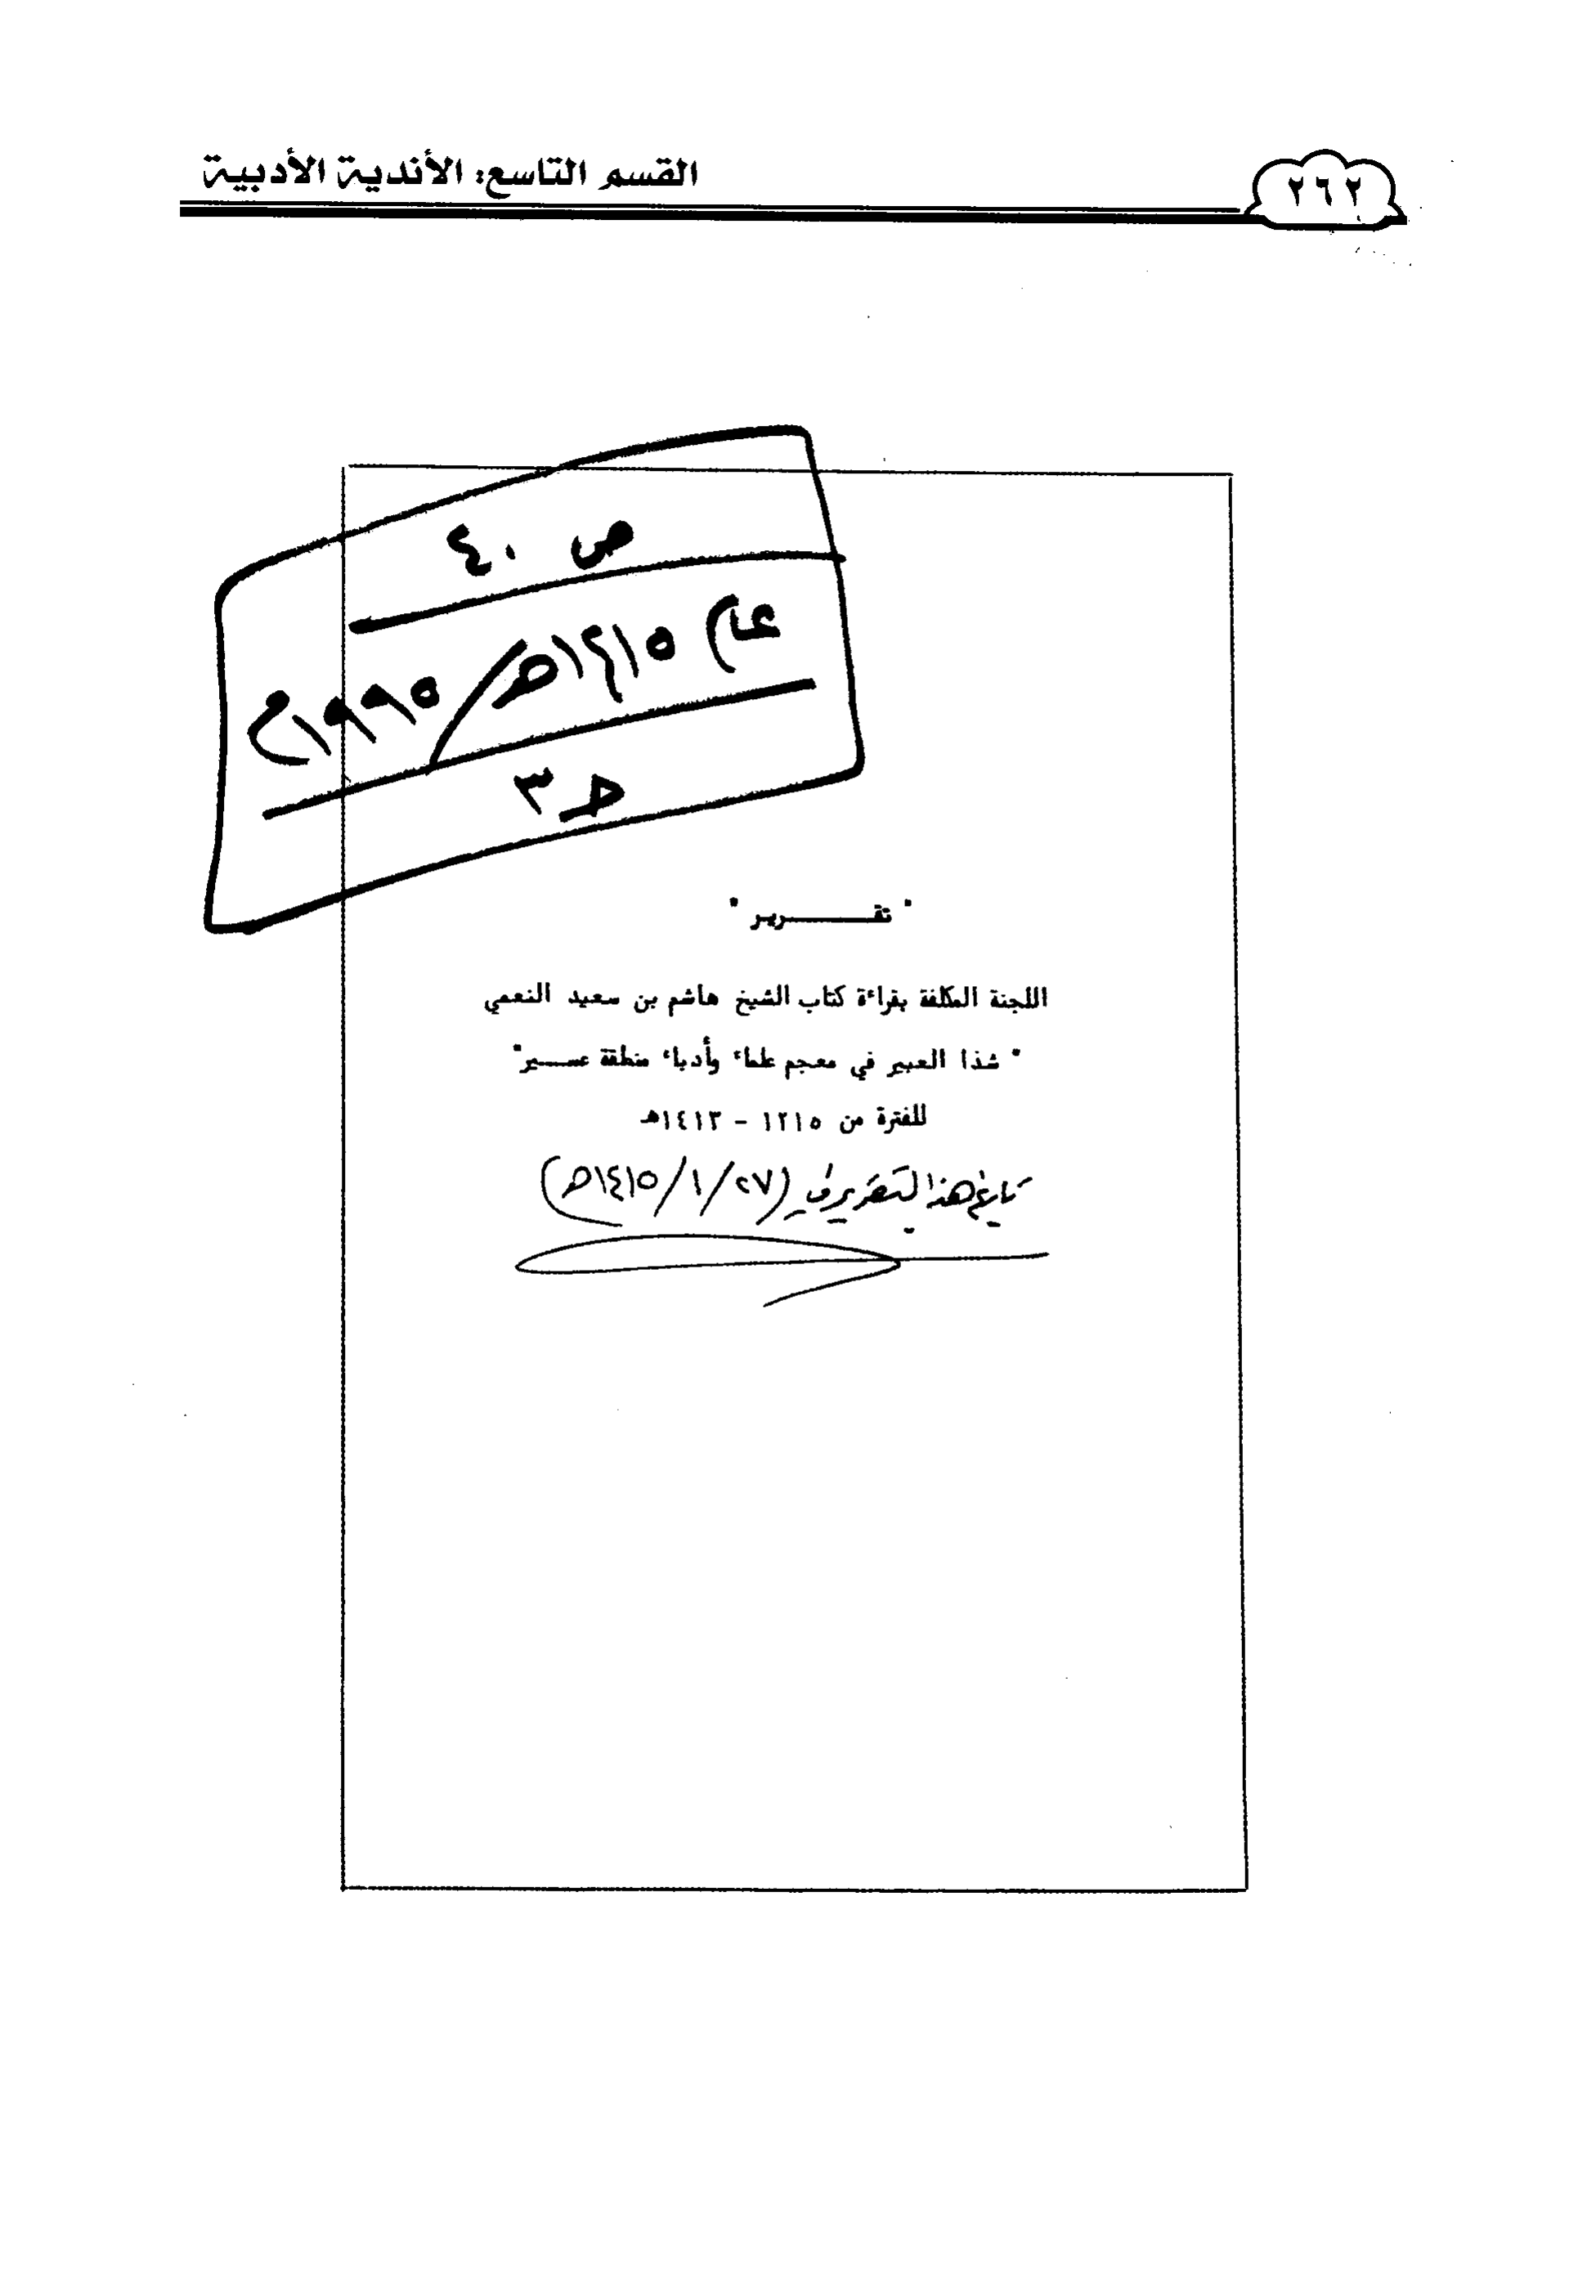 ٢٦٢
القسم التاسع: الأندية الأدبية
ص ٤٠
عام ١٤١٥هـ/١٩٩٥م
حـ ٣
" تقـــــــــرير "
اللجنة المكلفة بقراءة كتاب الشيخ هاشم بن سعيد النعمي
" شذا العبير في معجم علماء وأدباء منطقة عســـير"
للفترة من ١٢١٥ - ١٤١٣هـ
تاريخ هذا التقرير في (١٤١٥/١/٢٧هـ)